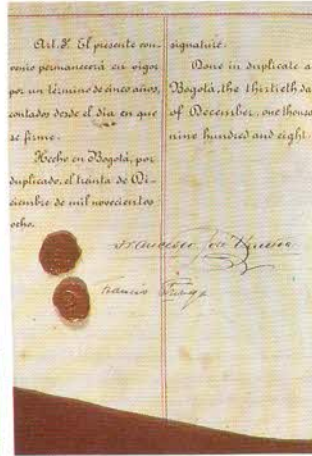 Art. 3º. El presente con-
venio permanecerá en vigor
por un término de cinco años,
contados desde el día en que
se firme.
Hecho en Bogotá, por
duplicado, el treinta de Di-
ciembre de mil novecientos
ocho.
signature.
Done in duplicate a
Bogotá, the thirtieth da
of December, one thous
nine hundred and eight.
Francisco José Urrutia
Francis